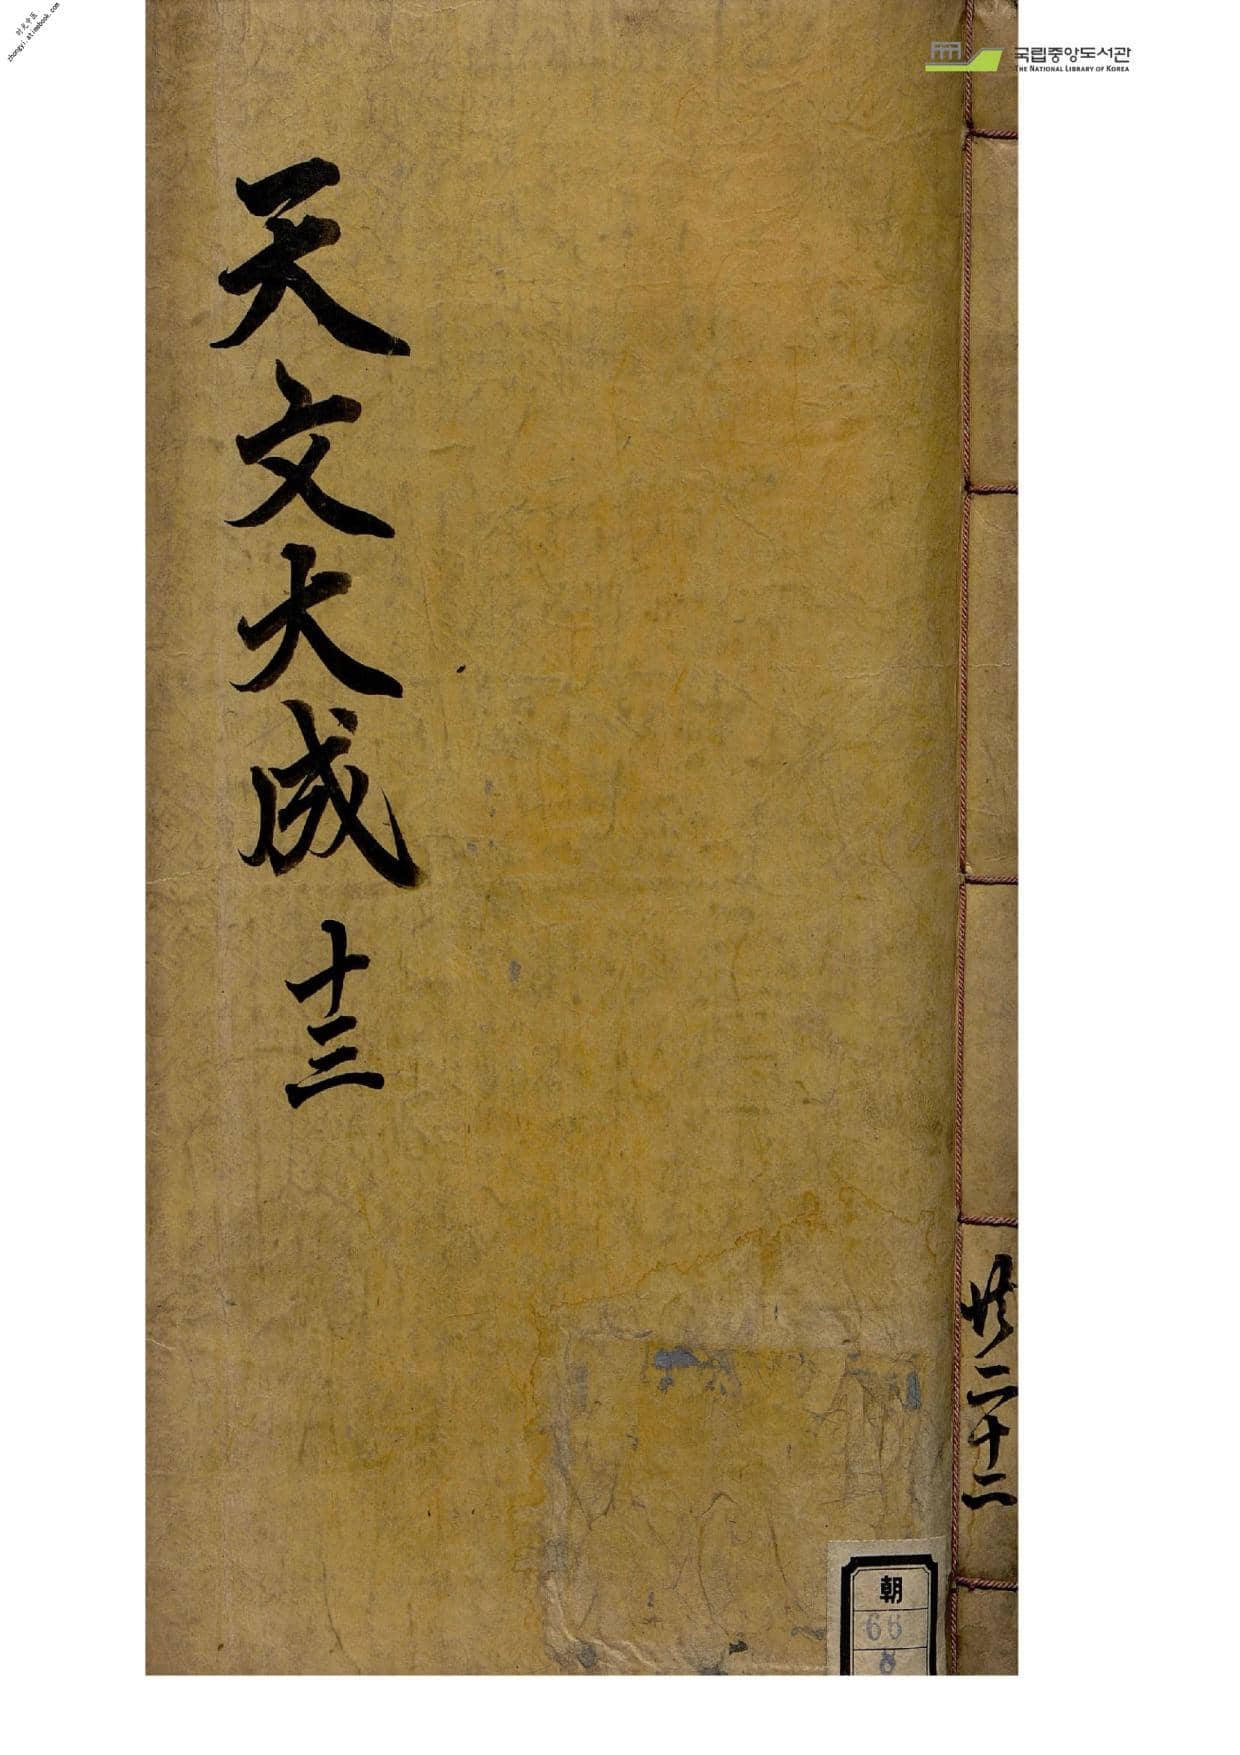 天文大成
十三
共二十二
朝
66
8
국립중앙도서관
THE NATIONAL LIBRARY OF KOREA
时光中医
zhongyi.atimebook.com